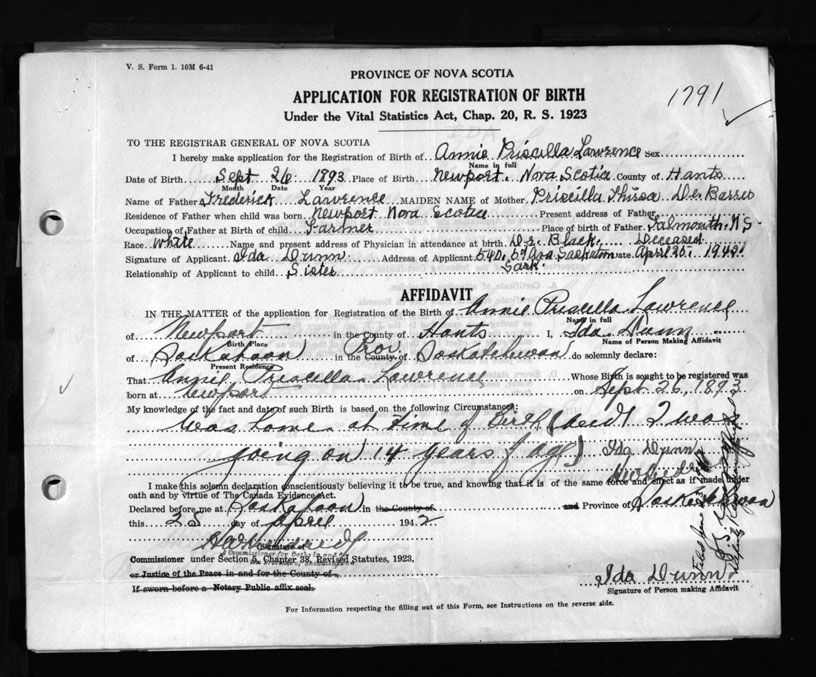 V. S. Form 1. 10M 6-41
PROVINCE OF NOVA SCOTIA
APPLICATION FOR REGISTRATION OF BIRTH
1791
Under the Vital Statistics Act, Chap. 20, R. S. 1923
TO THE REGISTRAR GENERAL OF NOVA SCOTIA
I hereby make application for the Registration of Birth of Annie Priscilla Lawrence Sex
Name in full
Date of Birth Sept 26 1893 Place of Birth Newport. Nova Scotia County of Hants
Month Date Year
Name of Father Frederick Lawrence MAIDEN NAME of Mother Priscilla De Barres
Residence of Father when child was born Newport Nova Scotia Present address of Father
Occupation of Father at Birth of child Farmer Place of birth of Father Falmouth. N S
Race White Name and present address of Physician in attendance at birth Dr. Black. Deceased
Signature of Applicant Ida Dunn Address of Applicant 540. Saskatoon Date April 25. 1942
Sask.
Relationship of Applicant to child Sister
AFFIDAVIT
IN THE MATTER of the application for Registration of the Birth of Annie Priscilla Lawrence
Name in full
of Newport in the County of Hants I, Ida Dunn
Birth Place Name of Person Making Affidavit
of Saskatoon in the County of Prov Saskatchewan do solemnly declare:
Present Residence
That Annie Priscilla Lawrence Whose Birth is sought to be registered was
born at Newport on Sept. 26, 1893
My knowledge of the fact and date of such Birth is based on the following Circumstances:
Was home at time of Birth (and I was
going on 14 years of age) Ida Dunn
I make this solemn declaration conscientiously believing it to be true, and knowing that it is of the same force and effect as if made under
oath and by virtue of The Canada Evidence Act.
Declared before me at Saskatoon in the County of and Province of Saskatchewan
this 25 day of April 1942
Signature of
A Commissioner for Oaths in and
Commissioner under Section 3, Chapter 38, Revised Statutes, 1923,
or Justice of the Peace in and for the County of
Ida Dunn
If sworn before a Notary Public affix seal.
Signature of Person making Affidavit
For Information respecting the filling out of this Form, see Instructions on the reverse side.